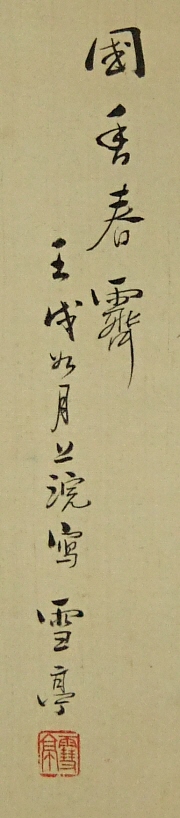 國香春霽
壬戌如月上浣寫
雪亭
雪亭